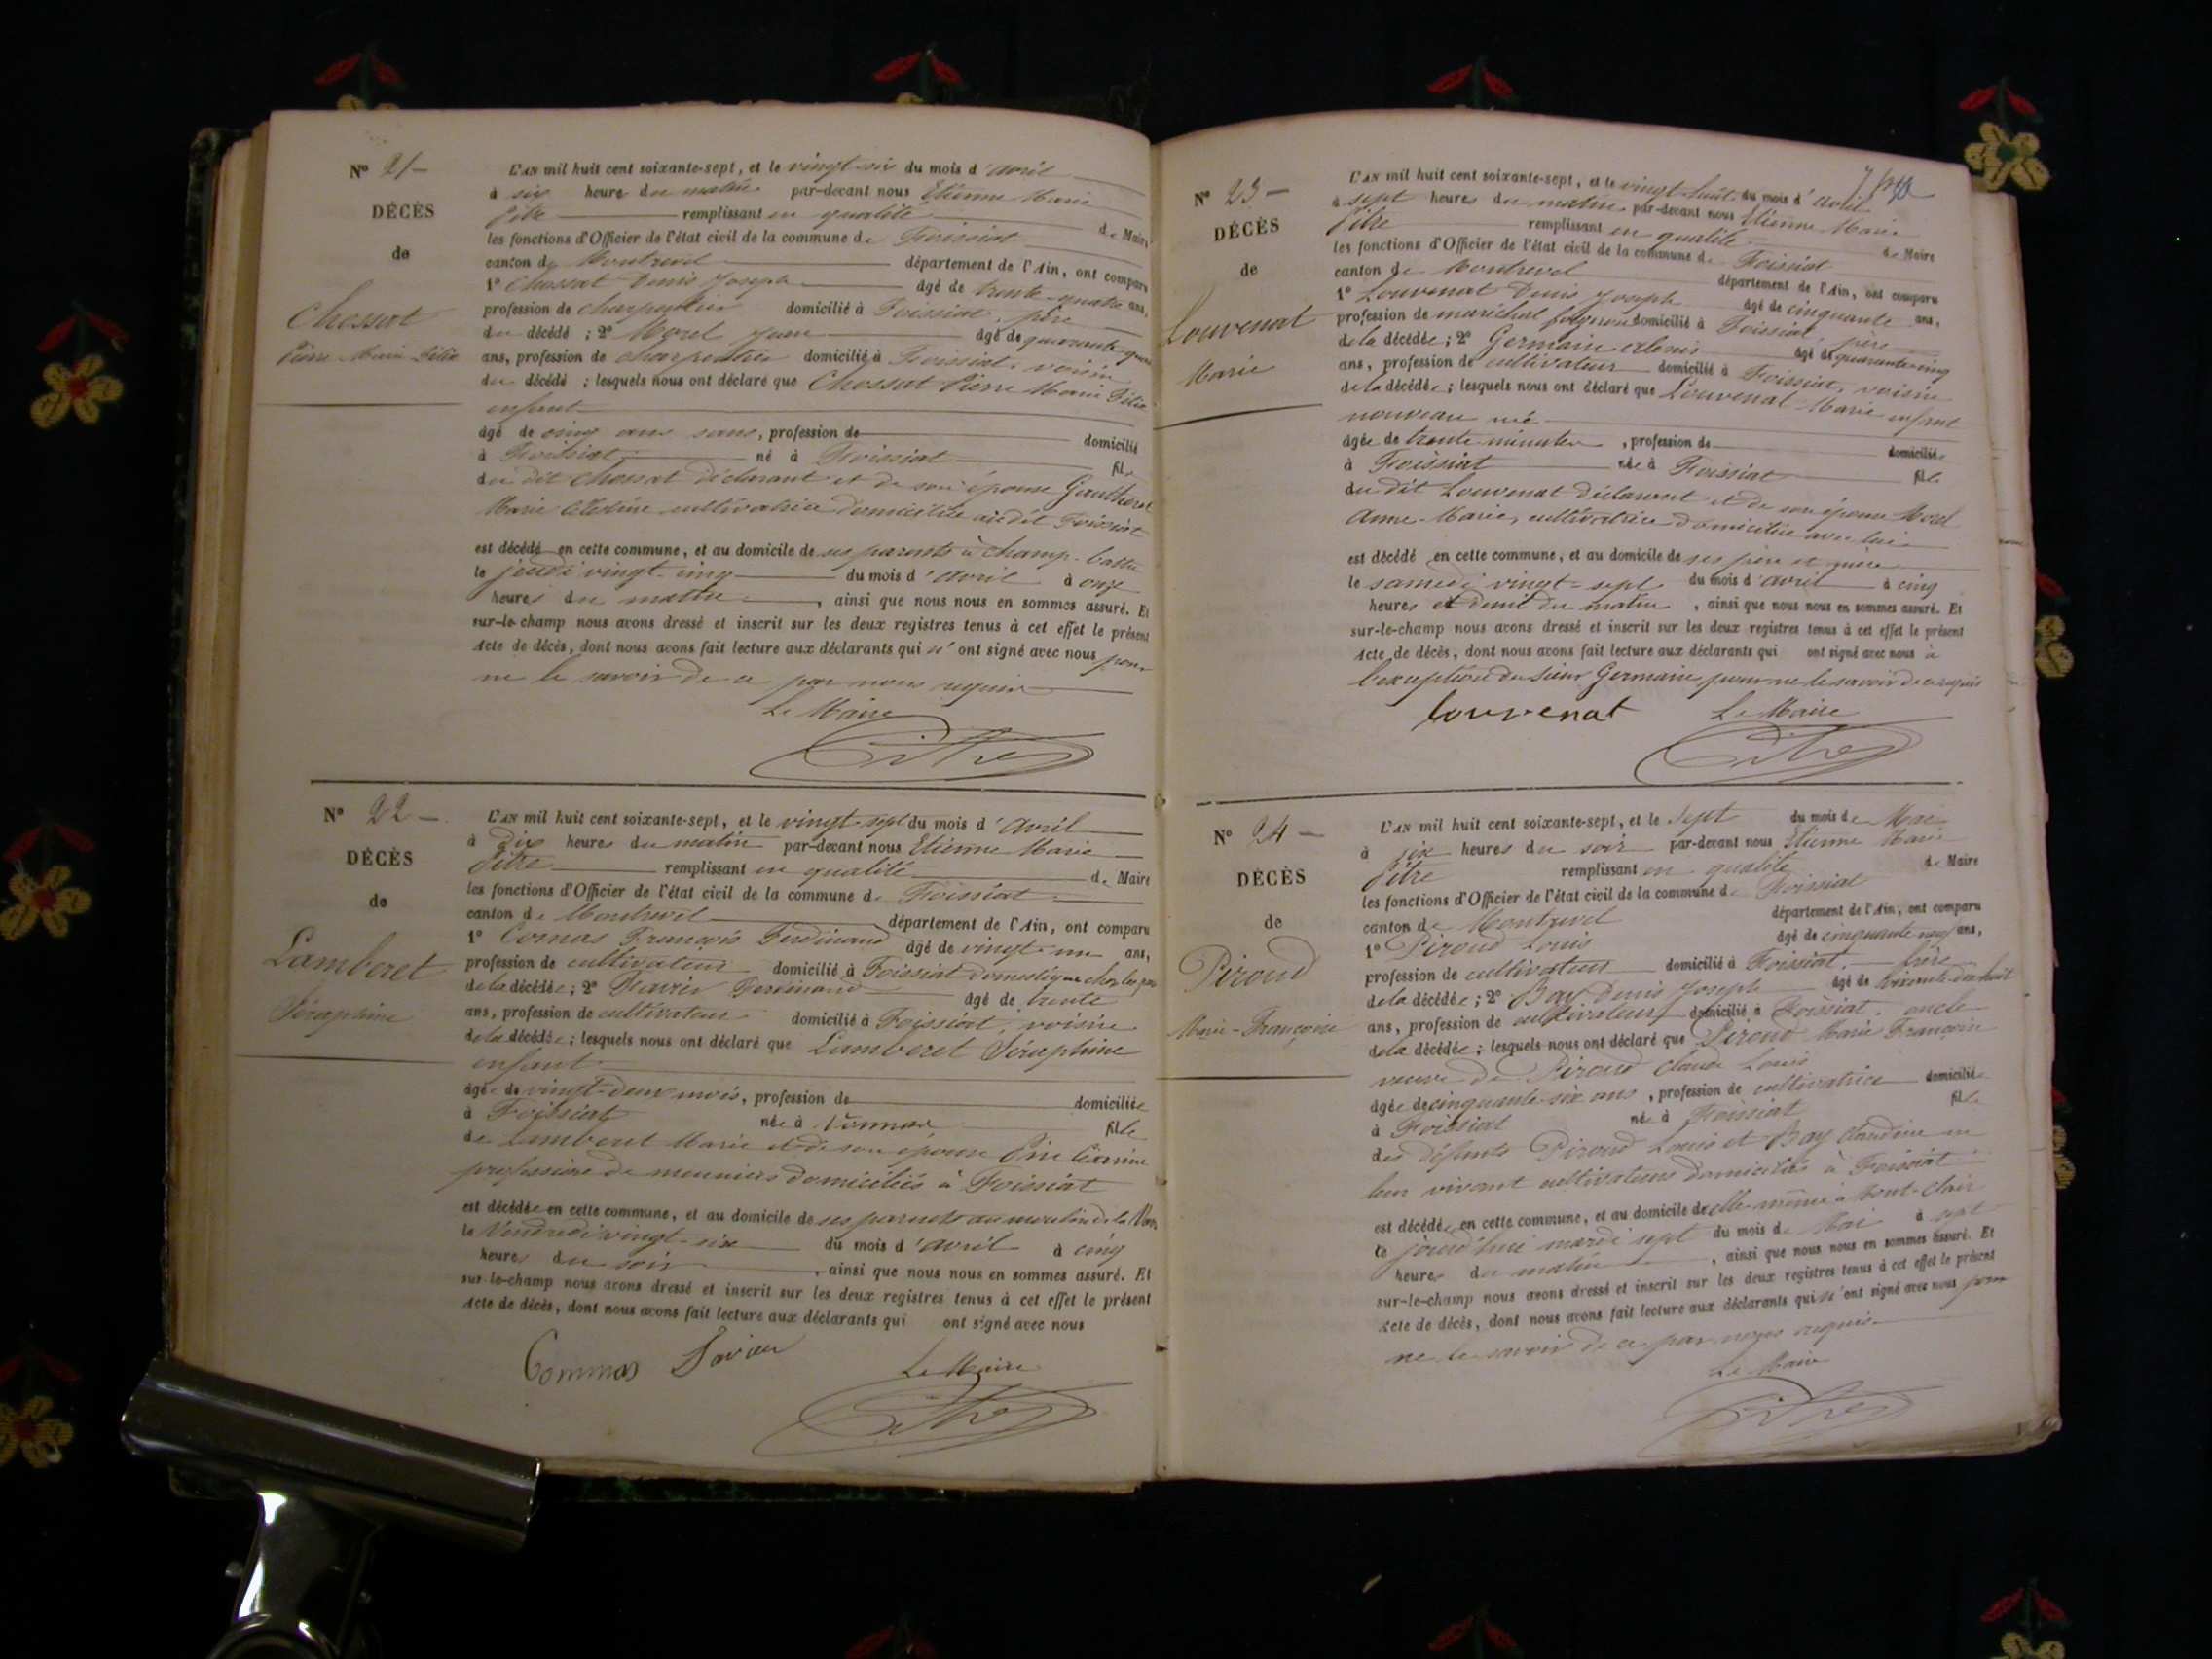 N° 21 —
DÉCÈS
de
Chossat
Pierre Marie Félix
L'AN mil huit cent soixante-sept, et le vingt-six du mois d'avril
à six heures du matin par-devant nous Etienne Marie
Pitre remplissant en qualité de Maire
les fonctions d'Officier de l'état civil de la commune de Foissiat
canton de Montrevel département de l'Ain, ont comparu
1° Chossat Denis Joseph âgé de trente-quatre ans,
profession de charpentier domicilié à Foissiat, père
du décédé ; 2° Morel Jean âgé de quarante-quatre
ans, profession de charpentier domicilié à Foissiat, voisin
du décédé ; lesquels nous ont déclaré que Chossat Pierre Marie Félix
enfant
âgé de cinq ans, profession de domicilié
à Foissiat né à Foissiat fils
du dit Chossat déclarant et de son épouse Gautheret
Marie Célestine cultivatrice domiciliée au dit Foissiat
est décédé en cette commune, et au domicile de ses parents à Champ-
le jeudi vingt-cinq du mois d'avril à onze
heures du matin, ainsi que nous nous en sommes assuré. Et
sur-le-champ nous avons dressé et inscrit sur les deux registres tenus à cet effet le présent
Acte de décès, dont nous avons fait lecture aux déclarants qui n'ont signé avec nous pour
ne le savoir de ce par nous requis
Le Maire
Pitre
N° 22 —
DÉCÈS
de
Lamberet
Séraphine
L'AN mil huit cent soixante-sept, et le vingt-sept du mois d'avril
à Dix heures du matin par-devant nous Etienne Marie
Pitre remplissant en qualité de Maire
les fonctions d'Officier de l'état civil de la commune de Foissiat
canton de Montrevel département de l'Ain, ont comparu
1° Comas François Ferdinand âgé de vingt-un ans,
profession de cultivateur domicilié à Foissiat domestique chez les
de la décédée ; 2° Ferdinand âgé de trente
ans, profession de cultivateur domicilié à Foissiat, voisin
de la décédée ; lesquels nous ont déclaré que Lamberet Séraphine
enfant
âgée de vingt-deux mois, profession de domiciliée
à Foissiat née à Vonnas fille
de Lamberet Marie et de son épouse
profession de meuniers domiciliés à Foissiat
est décédée en cette commune, et au domicile de ses parents au moulin de la
le Vendredi vingt-six du mois d'avril à cinq
heures du soir, ainsi que nous nous en sommes assuré. Et
sur-le-champ nous avons dressé et inscrit sur les deux registres tenus à cet effet le présent
Acte de décès, dont nous avons fait lecture aux déclarants qui ont signé avec nous
Commas
Le Maire
Pitre
N° 23 —
DÉCÈS
de
Louvenat
Marie
L'AN mil huit cent soixante-sept, et le vingt-huit du mois d'avril
à sept heures du matin par-devant nous Etienne Marie
Pitre remplissant en qualité de Maire
les fonctions d'Officier de l'état civil de la commune de Foissiat
canton de Montrevel département de l'Ain, ont comparu
1° Louvenat Denis Joseph âgé de cinquante ans,
profession de maréchal forgeron domicilié à Foissiat, père
de la décédée ; 2° Germain âgé de quarante-cinq
ans, profession de cultivateur domicilié à Foissiat, voisin
de la décédée ; lesquels nous ont déclaré que Louvenat Marie enfant
nouveau né
âgée de trente minutes, profession de domiciliée
à Foissiat née à Foissiat fille
du dit Louvenat déclarant et de son épouse Morel
Anne-Marie, cultivatrice domiciliée avec lui
est décédé en cette commune, et au domicile de ses père et mère
le samedi vingt-sept du mois d'avril à cinq
heures et demie du matin, ainsi que nous nous en sommes assuré. Et
sur-le-champ nous avons dressé et inscrit sur les deux registres tenus à cet effet le présent
Acte de décès, dont nous avons fait lecture aux déclarants qui ont signé avec nous à
l'exception du Sieur Germain pour ne le savoir de ce requis
Louvenat Le Maire
Pitre
N° 24 —
DÉCÈS
de
Piroud
Marie-Françoise
L'AN mil huit cent soixante-sept, et le sept du mois de Mai
à six heures du soir par-devant nous Etienne Marie
Pitre remplissant en qualité de Maire
les fonctions d'Officier de l'état civil de la commune de Foissiat
canton de Montrevel département de l'Ain, ont comparu
1° Piroud Louis âgé de cinquante neuf ans,
profession de cultivateur domicilié à Foissiat, frère
de la décédée ; 2° Bay Denis Joseph âgé de soixante-dix-huit
ans, profession de cultivateur domicilié à Foissiat, oncle
de la décédée ; lesquels nous ont déclaré que Piroud Marie Françoise
veuve de Piroud Claude Louis
âgée de cinquante-six ans, profession de cultivatrice domiciliée
à Foissiat née à Foissiat fille
des défunts Piroud Louis et Bay Claudine en
leur vivant cultivateurs domiciliés à Foissiat
est décédée en cette commune, et au domicile d'elle-même à Mont-Clair
le jourd'hui mardi sept du mois de Mai à sept
heures du matin, ainsi que nous nous en sommes assuré. Et
sur-le-champ nous avons dressé et inscrit sur les deux registres tenus à cet effet le présent
Acte de décès, dont nous avons fait lecture aux déclarants qui n'ont signé avec nous pour
ne le savoir de ce par nous requis
Le Maire
Pitre